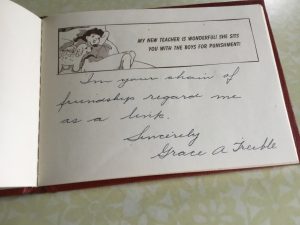 MY NEW TEACHER IS WONDERFUL! SHE SITS
YOU WITH THE BOYS FOR PUNISHMENT!
In your chain of
friendship regard me
as a link.
Sincerely
Grace A Treible